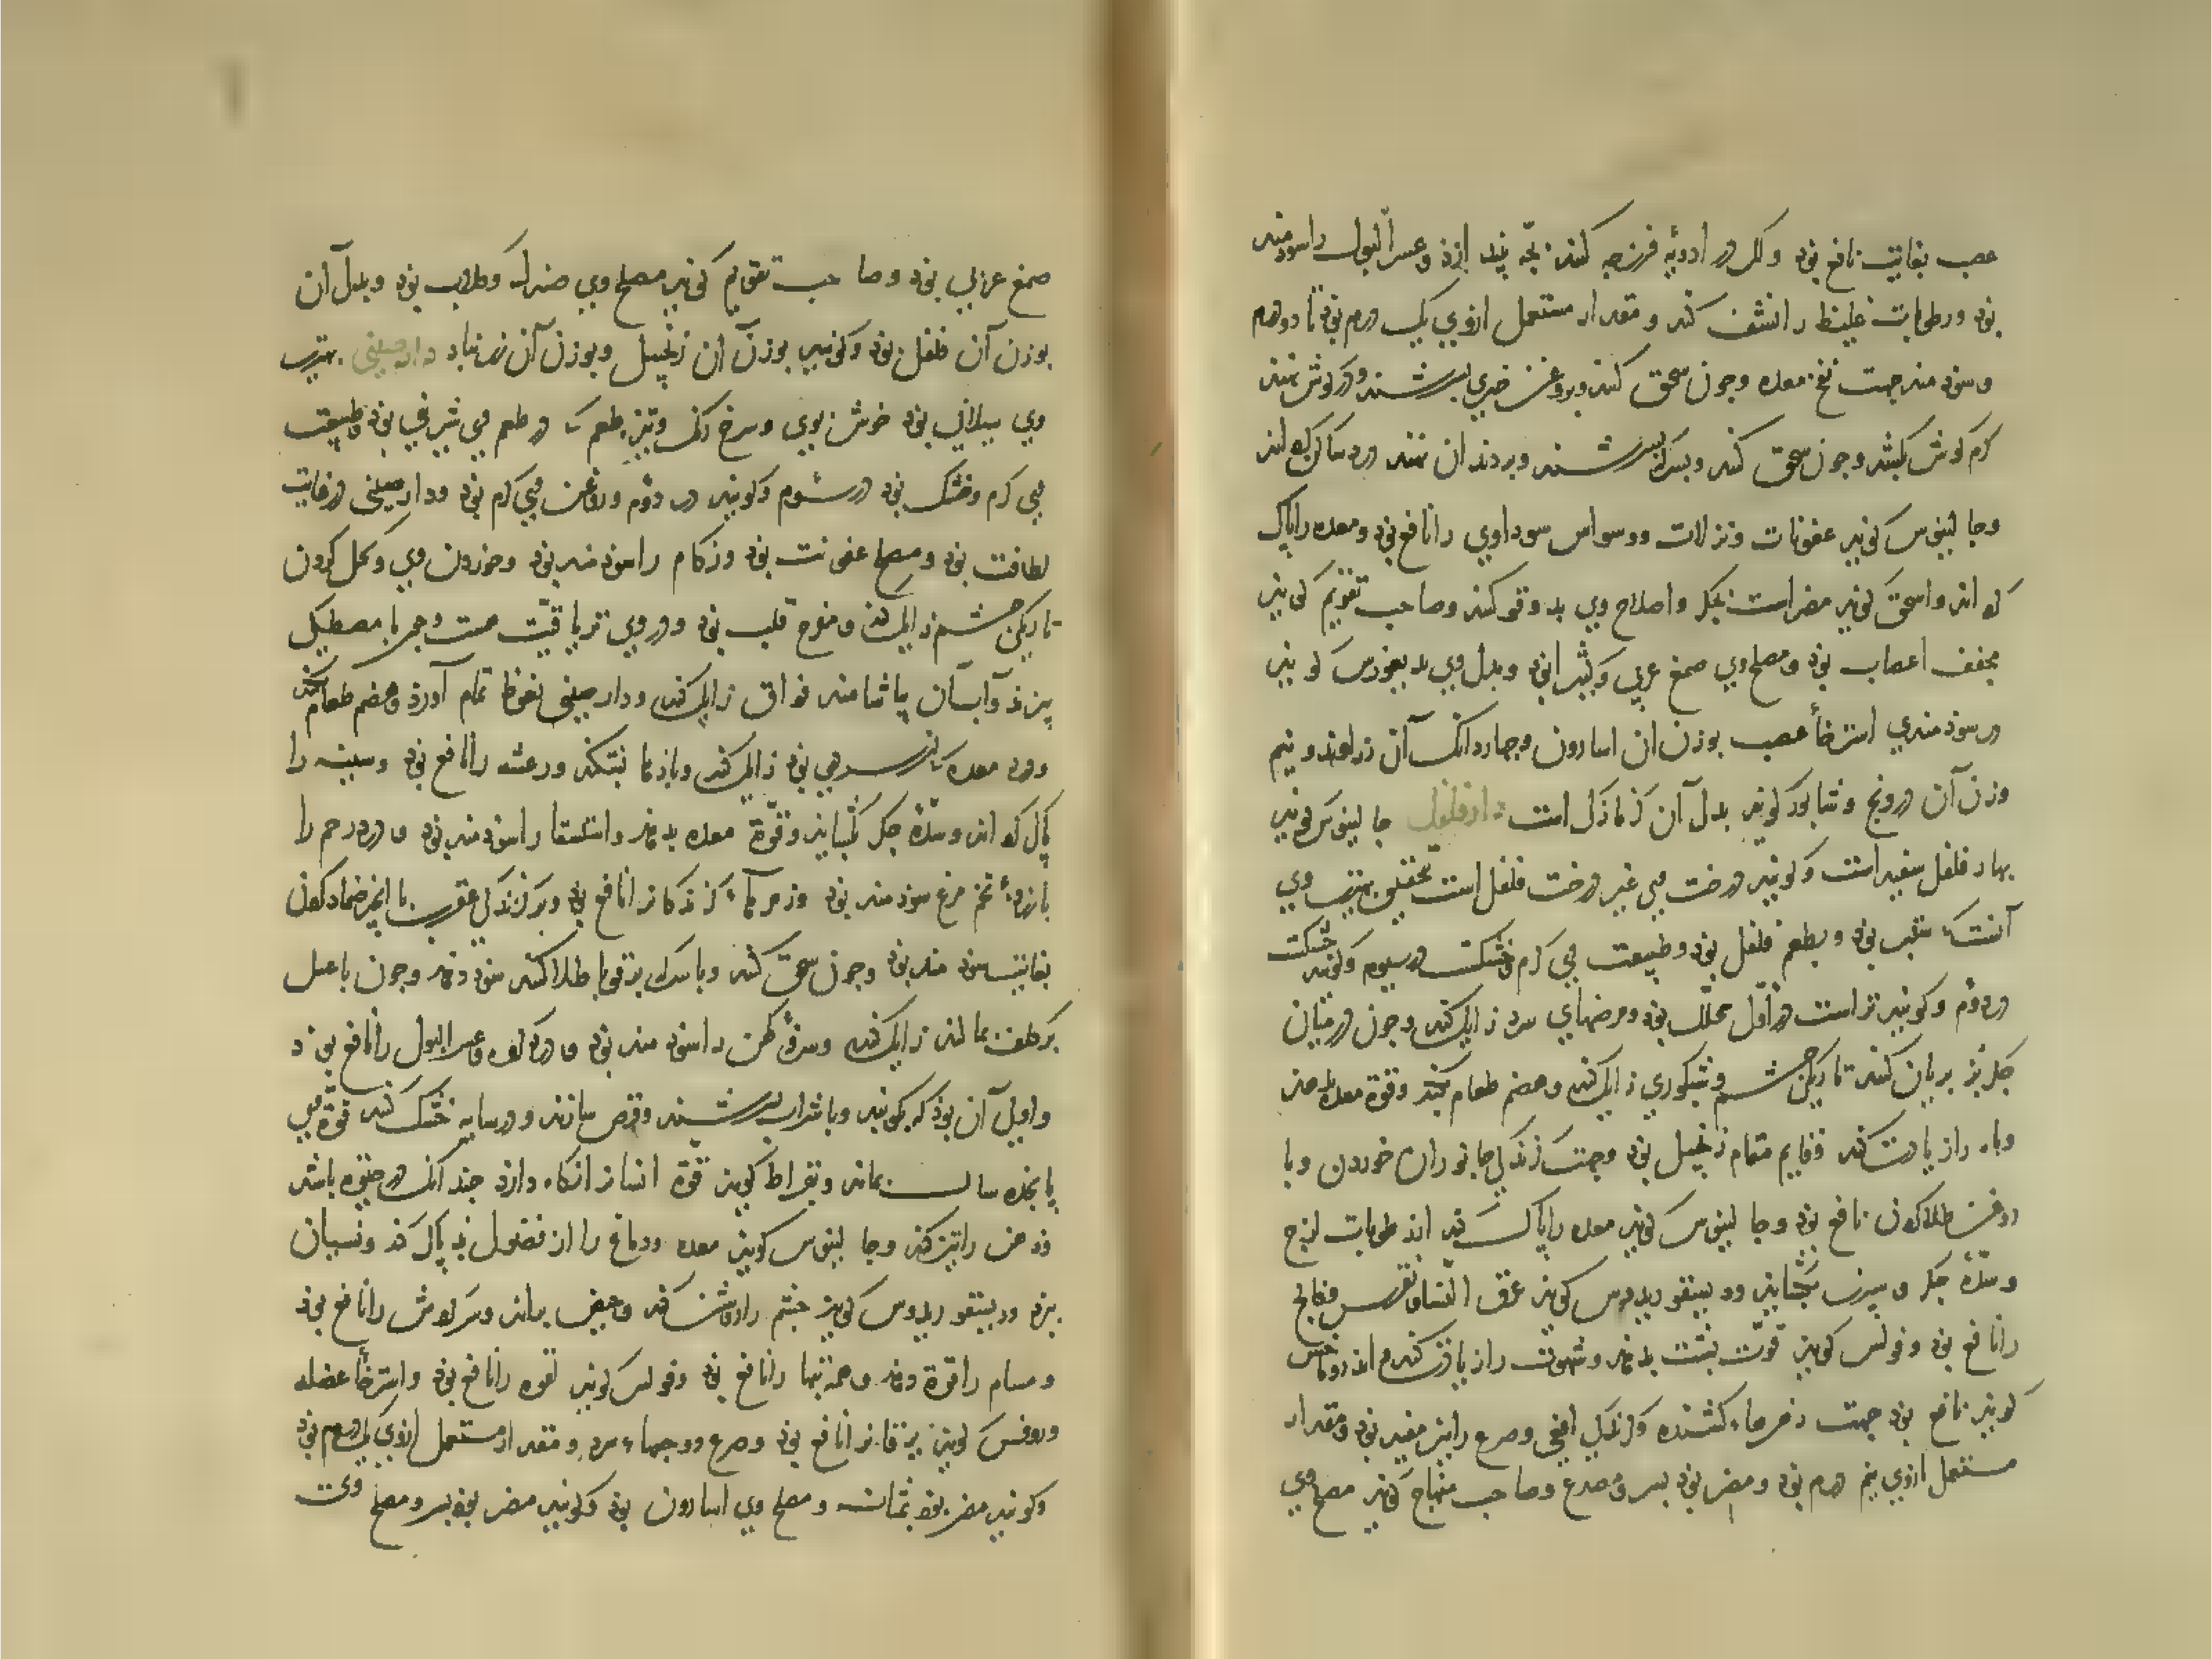 عصب بغایت نافع بوذ و اکر در ادویهٔ فرزجه کنند بچه بیندازذ و عسر البول را سوذمند
بوذ و رطوبات غلیظ را نشف کند و مقدار مستعمل ازوی یک درم بوذ تا دو درم
و سوذمند جهت نفخ معده و جون سحق کنند و بروغن خیری بسرشند و در کوش نهند
کرم کوش بکشد و جون سحق کنند و بسرکه بسرشند و بر دندان نهند درد ساکن کرداند
و جالینوس کویذ عفونات و نزلات و وسواس سوداوی را نافع بوذ و معده را پاک
کرداند و اسحق کویذ مضر است بجکر و اصلاح وی بدوقو کنند و صاحب تقویم کویذ
مجفف اعصاب بوذ و مصلح وی صمغ عربی و کثیرا بوذ و بدل وی بدیغورس کویذ
در سوذمندی استرخاء عصب بوزن ان اسارون و جهار دانک آن زراوند و نیم
وزن آن درونج و شابور کویذ بدل آن کزمازک است دارفلفل جالینوس کویذ
بهار فلفل سفید است و کویند درخت وی غیر درخت فلفل است بحقیق بهترین وی
آنست که ثقیب بوذ و بطعم فلفل بوذ و طبیعت وی کرم و خشکست در سیوم و کویند خشکست
در دوم و کویند تر است در اول محلل بوذ و مرضهای سرد زایل کند و جون در میان
جکر بز بریان کنند تاریکی جشم و شبکوری زایل کند و هضم طعام بکند و قوة معده بدهد
و باه را زیادت کند و قایم مقام زنجبیل بوذ و جهت کزندکی جانوران خوردن و با
روغن طلا کردن نافع بوذ و جالینوس کویذ معده را پاک کند از رطوبات لزج
و سدهٔ جکر و سپرز بکشاید و دیسقوریدوس کویذ عرق النسا و نقرس و فالج
را نافع بوذ و فولس کویذ قوت پشت بدهد و شهوت را زیاده کند و اندروماخس
کویذ نافع بوذ جهت زهرهاء کشنده و کزندکی افعی و صرع را نیز مفید بوذ و مقدار
مستعمل ازوی نیم درم بوذ و مضر بوذ بسر و مصدع و صاحب منهاج کویذ مصلح وی
صمغ عربی بوذ و صاحب تقویم کویذ مصلح وی صندل و کلاب بوذ و بدل آن
بوزن آن فلفل بوذ و کویند بوزن آن زنجبیل و بوزن آن زرنباد دارصینی بهترین
وی سیلانی بوذ خوش بوی و سرخ رنک و تیز طعم که در طعم وی شیرینی بوذ و طبیعت
وی کرم و خشک بوذ در سوم و کویند در دوم و روغن وی کرم بوذ و دارصینی در غایت
لطافت بوذ و مصلح عفونت بوذ و زکام را سوذمند بوذ و خوردن وی و کحل کردن
تاریکی جشم زایل کند و مفرح قلب بوذ و در وی تریاقیت هست و جون با مصطکی
بپزند و آب آن بیاشامند فواق زایل کند و دارصینی نعوظ تمام آورذ و هضم طعام بکند
و درد معده که از سردی بوذ زایل کند و باذها بشکند و رعشه را نافع بوذ و سینه را
پاک کرداند و سدهٔ جکر بکشاید و قوة معده بدهد و استسقا را سوذمند بوذ و درد رحم را
با زردهٔ تخم مرغ سوذمند بوذ و زهرهاء کزندکان را نافع بوذ و بر کزندکی عقرب با انجیر ضماد کردن
بغایت سوذمند بوذ و جون سحق کنند و با سرکه بر قوبا طلا کنند سوذ دهد و جون با عسل
بر کلف بمالند زایل کند و سرفه کهن را سوذمند بوذ و درد کرده و عسر البول را نافع بوذ
و اولی آن بوذ که بکوبند و با شراب بسرشند و قرص سازند و در سایه خشک کنند قوة وی
پانزده سال بماند و بقراط کویذ قوة انسان را نکاه دارد جندانک در جنوه باشد
و ذهن را تیز کند و جالینوس کویذ معده و دماغ را از فضول بد پاک کند و نسیان
ببرد و دیسقوریدوس کویذ جشم را روشن کند و حیض براند و سر کوش را نافع بوذ
و مسام را قوة دهد و همه تبها را نافع بوذ و فولس کویذ لقوه را نافع بوذ و استرخاء عضله
و روفس کویذ یرقان را نافع بوذ و صرع و وجعهاء سرد و مقدار مستعمل ازوی یک درم بوذ
و کویند مضر بوذ بمثانه و مصلح وی اسارون بوذ و کویند مضر بوذ بسر و مصلح وی